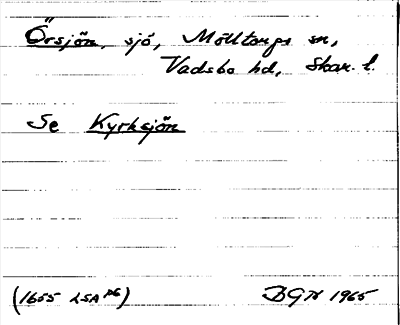 Örsjön, sjö, Mölltorps sn,
Vadsbo hd, Skar. l.
Se Kyrksjön
(1655 LSA P6)
BGN 1965